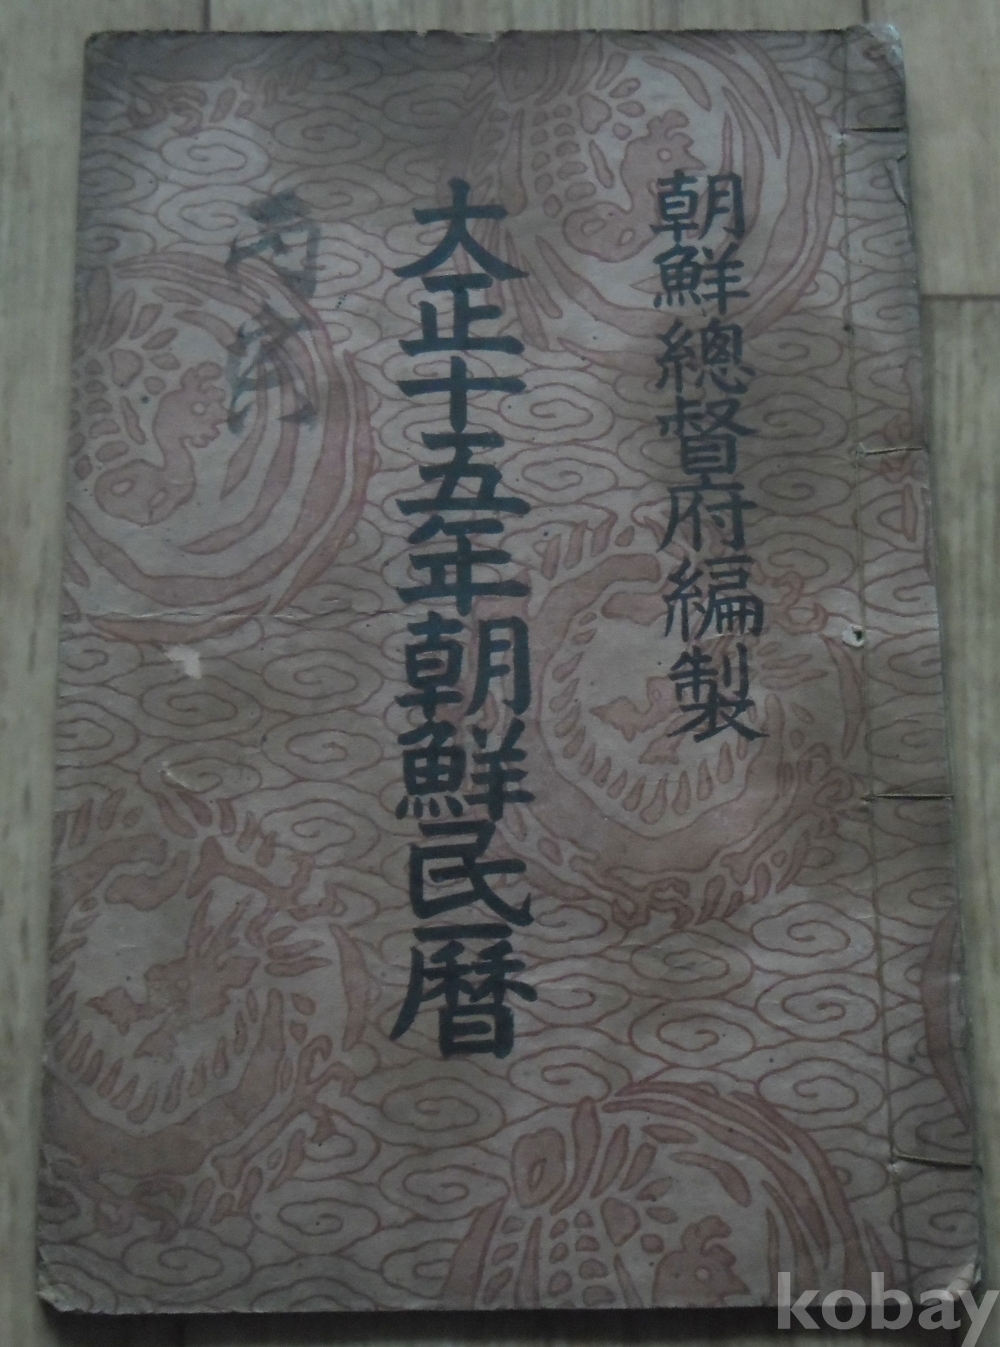 朝鮮總督府編製
大正十五年朝鮮民曆
丙寅
kobay